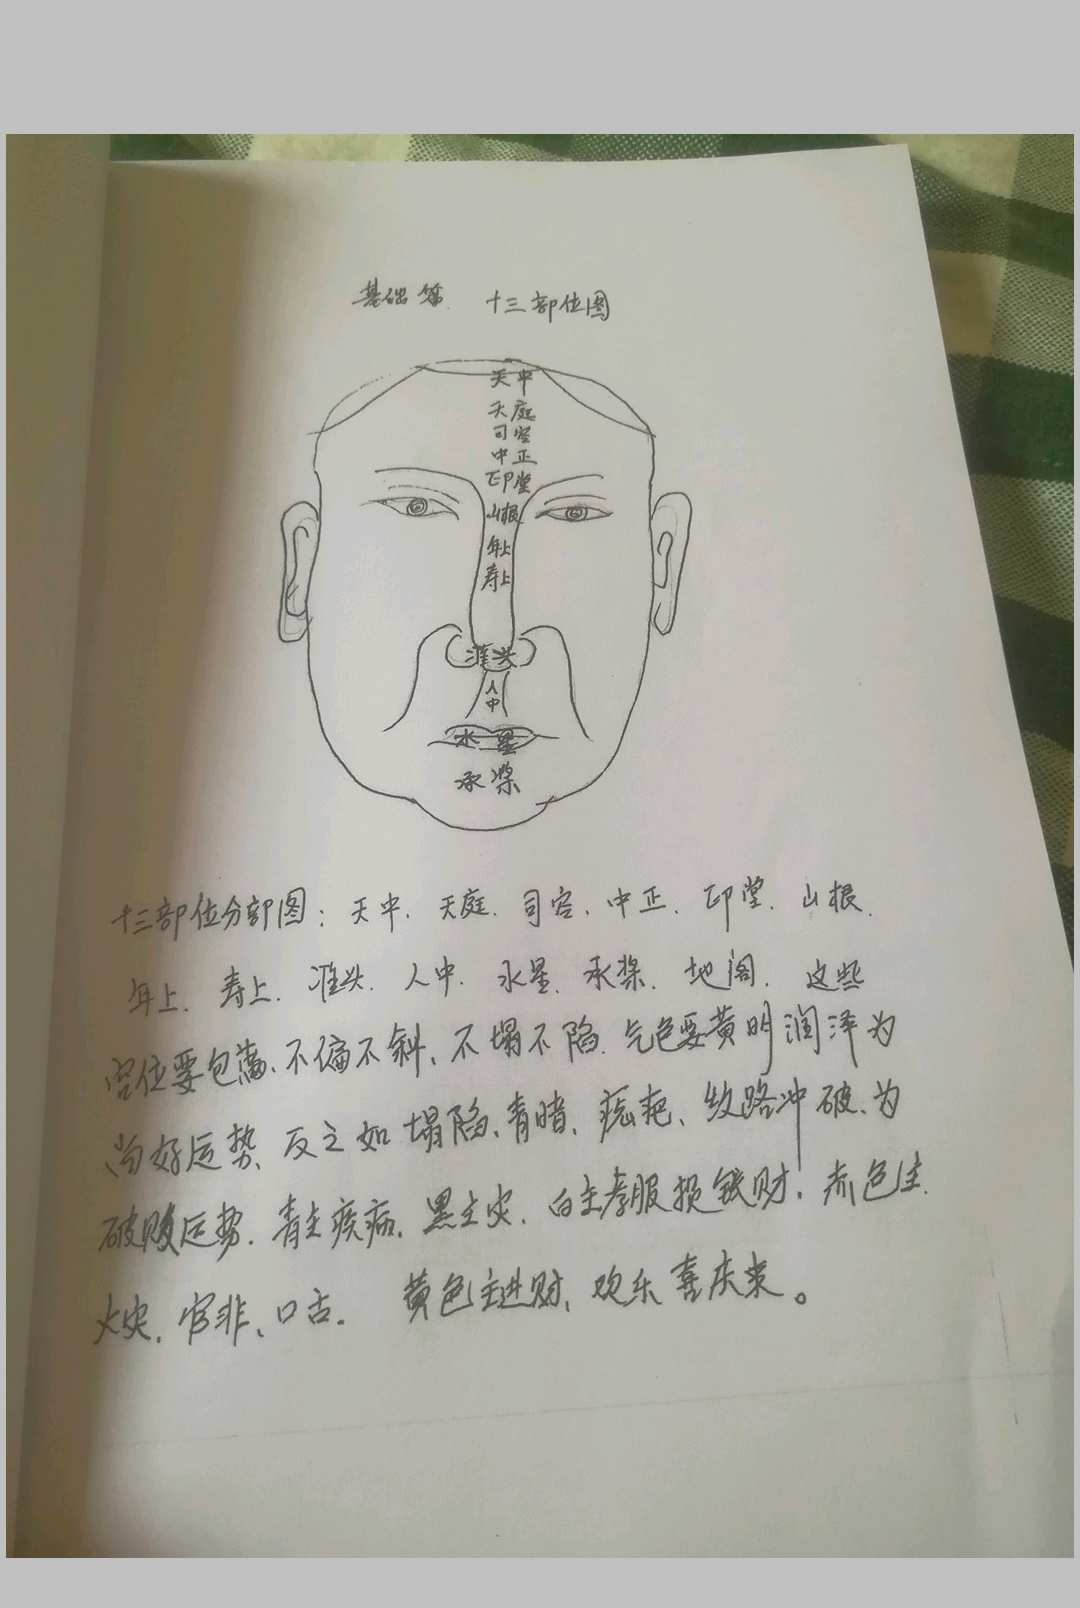 基础篇 十三部位图
天中
天庭
司空
中正
印堂
山根
年上
寿上
准头
人中
水星
承浆
十三部位分部图：天中、天庭、司空、中正、印堂、山根、
年上、寿上、准头、人中、水星、承浆、地阁、这些
宫位要包满、不偏不斜、不塌不陷、气色要黄明润泽为
尚好运势、反之如塌陷、青暗、疤耙、纹路冲破、为
破败运势、青主疾病、黑主灾、白主孝服损钱财、赤色主
火灾、官非、口舌。 黄色主进财、欢乐喜庆来。